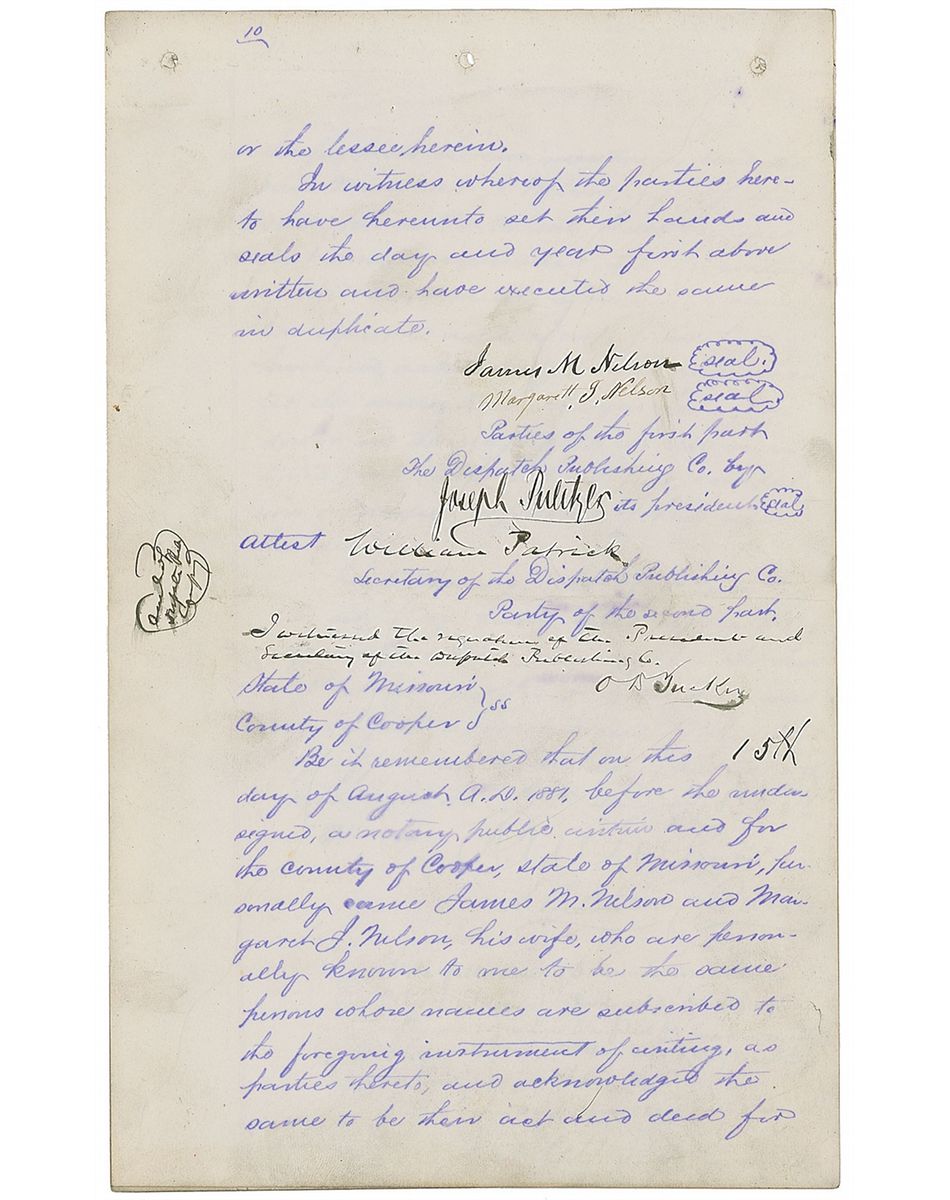 10
or the lessee, herein.
In witness whereof the parties here-
to have hereunto set their hands and
seals the day and year first above
written and have executed the same
in duplicate.
James M Nelson seal.
Margarett. J. Nelson seal
Parties of the first part
The Dispatch Publishing Co. by
Joseph Pulitzer its president seal
Attest William Patrick
Secretary of the Dispatch Publishing Co.
Party of the second part.
seal of
I witnessed the signature of the President and
Secretary of the Dispatch Publishing Co.
O D Tucker
State of Missouri
County of Cooper } ss
Be it remembered that on this 15th
day of August. A.D. 1881, before the under-
signed, a notary public within and for
the county of Cooper, state of Missouri, per-
sonally came James M. Nelson and Mar-
garet J. Nelson, his wife, who are person-
ally known to me to be the same
persons whose names are subscribed to
the foregoing instrument of writing, as
parties thereto, and acknowledged the
same to be their act and deed for